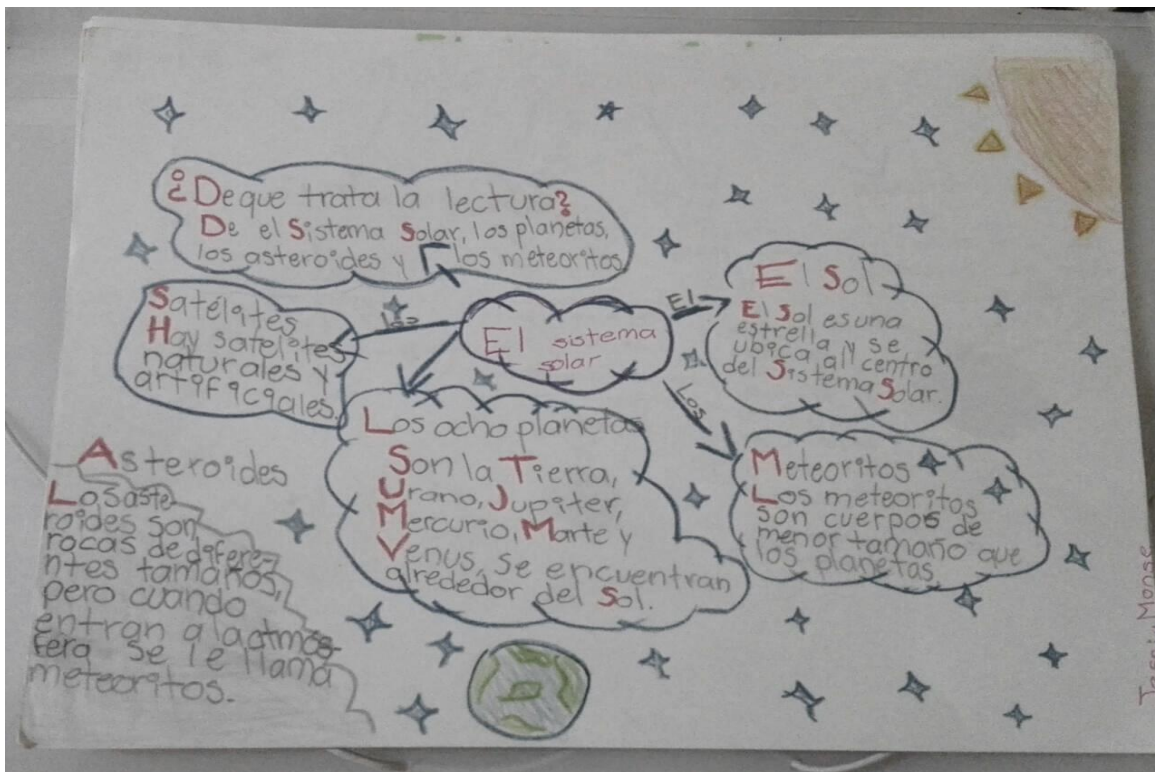 ¿De que trata la lectura?
De el Sistema Solar, los planetas,
los asteroides y los meteoritos
Satélites
Hay satelites
naturales y
artificiales.
Los
El sistema
solar
El
El Sol
El Sol es una
estrella y se
ubica al centro
del Sistema Solar.
Los
Los ocho planetas
Son la Tierra,
Urano, Jupiter,
Mercurio, Marte y
Venus, se encuentran
alrededor del Sol.
Meteoritos
Los meteoritos
son cuerpos de
menor tamaño que
los planetas
Asteroides
Los aste
roides son
rocas de difere-
ntes tamaños,
pero cuando
entran a la atmos-
fera se le llama
meteoritos.
Monse